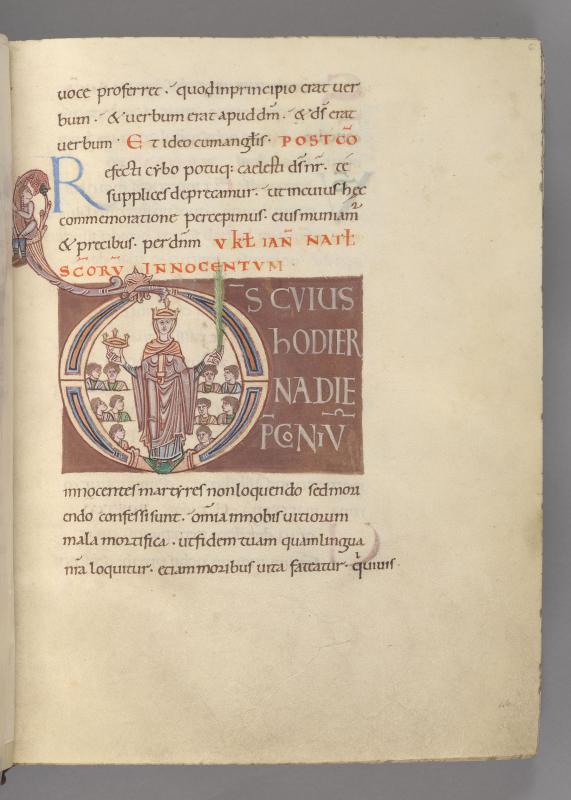 uoce proferret. quod in principio erat uer
bum. & uerbum erat apud dm̄. & ds̄ erat
uerbum. Et ideo cum angłis. POST CŌ
Refecti cybo potuq: caelesti ds̄ nr̄. te
supplices deprecamur. ut in cuius hęc
commemoratione percepimus. eius muniam̄
& precibus. per dnm̄ V KŁ IAN̄ NATŁ
SC̄ORV̄ INNOCENTVM
D̄S CVIUS
hODIER
NA DIE
P̄CONIV̄
innocentes martyres non loquendo sed mori
endo confessi sunt. omīa in nobis uitiorum
mala mortifica. ut fidem tuam quam lingua
nr̄a loquitur. etiam moribus uita fateatur. qui uiuis.